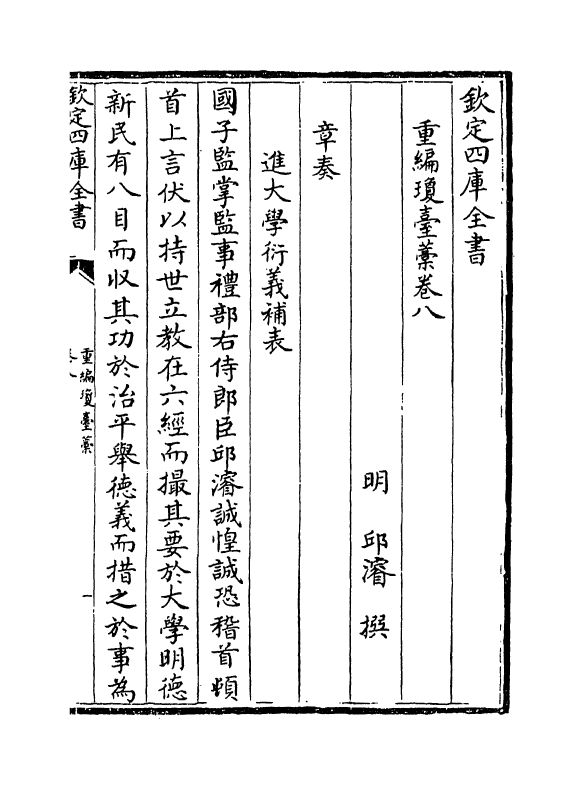 欽定四庫全書
重編瓊臺藁卷八
明 邱濬 撰
章奏
進大學衍義補表
國子監掌監事禮部右侍郎臣邱濬誠惶誠恐稽首頓
首上言伏以持世立教在六經而撮其要於大學明德
新民有八目而收其功於治平舉徳義而措之於事為
欽定四庫全書
重編瓊臺藁
卷八
一